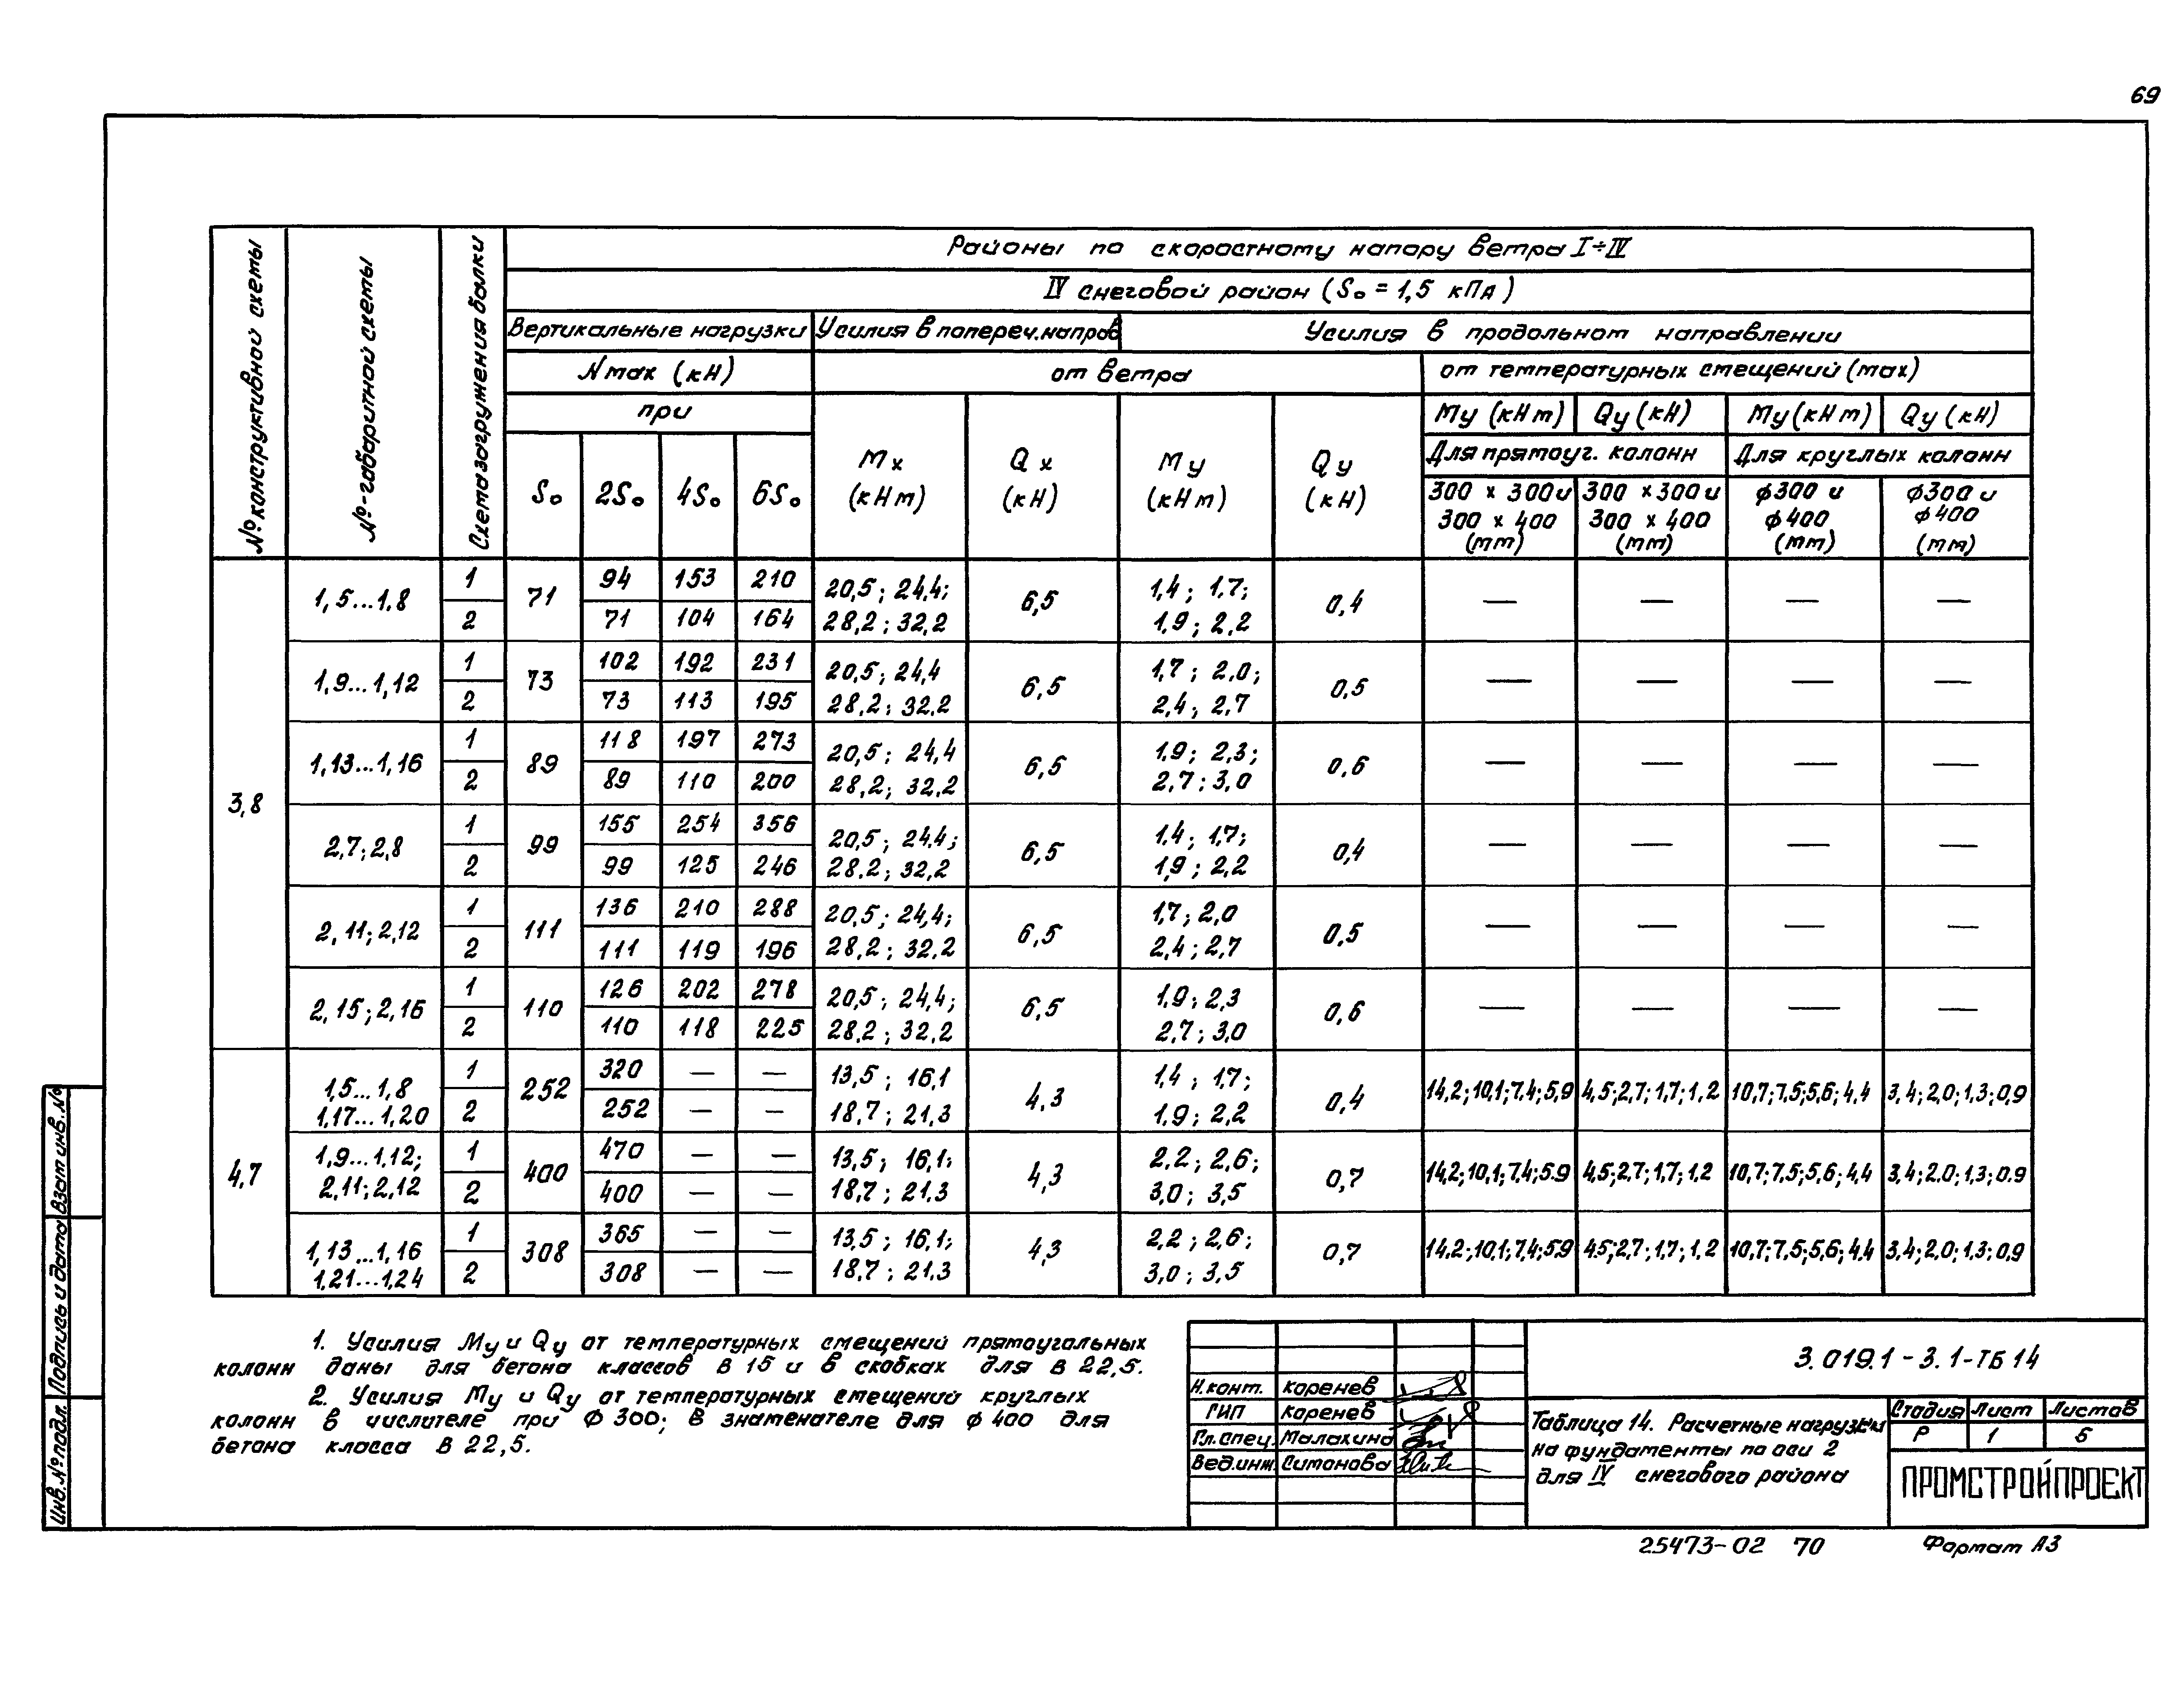 69
№ конструктивной схемы
№-габаритной схемы
Схема загружения балки
Районы по скоростному напору ветра I÷IV
IV снеговой район (S₀ = 1,5 кПа)
Вертикальные нагрузки Усилия в попереч.направ Усилия в продольном направлении
Nmax (кН) от ветра от температурных смещений (max)
при
My (кНм) Qy (кН) My (кНм) Qy (кН)
Для прямоуг. колонн Для круглых колонн
S₀ 2S₀ 4S₀ 6S₀
Mx (кНм) Qx (кН) My (кНм) Qy (кН)
300 × 300 и 300 × 300 и ϕ300 и ϕ300 и
300 × 400 300 × 400 ϕ400 ϕ400
(мм) (мм) (мм) (мм)
3,8
1,5...1,8 1 71 94 153 210 20,5; 24,4; 6,5 1,4; 1,7; 0,4 — — — —
2 71 104 164 28,2; 32,2 1,9; 2,2
1,9...1,12 1 73 102 192 231 20,5; 24,4 6,5 1,7; 2,0; 0,5 — — — —
2 73 113 195 28,2; 32,2 2,4; 2,7
1,13...1,16 1 89 118 197 273 20,5; 24,4 6,5 1,9; 2,3; 0,6 — — — —
2 89 110 200 28,2; 32,2 2,7; 3,0
2,7; 2,8 1 99 155 254 356 20,5; 24,4; 6,5 1,4; 1,7; 0,4 — — — —
2 99 125 246 28,2; 32,2 1,9; 2,2
2,11; 2,12 1 111 136 210 288 20,5; 24,4; 6,5 1,7; 2,0 0,5 — — — —
2 111 119 196 28,2; 32,2 2,4; 2,7
2,15; 2,16 1 110 126 202 278 20,5; 24,4; 6,5 1,9; 2,3 0,6 — — — —
2 110 118 225 28,2; 32,2 2,7; 3,0
4,7
1,5...1,8 1 252 320 — — 13,5; 16,1 4,3 1,4; 1,7; 0,4 14,2; 10,1; 7,4; 5,9 4,5; 2,7; 1,7; 1,2 10,7; 7,5; 5,6; 4,4 3,4; 2,0; 1,3; 0,9
1,17...1,20 2 252 — — 18,7; 21,3 1,9; 2,2
1,9...1,12; 1 400 470 — — 13,5; 16,1; 4,3 2,2; 2,6; 0,7 14,2; 10,1; 7,4; 5,9 4,5; 2,7; 1,7; 1,2 10,7; 7,5; 5,6; 4,4 3,4; 2,0; 1,3; 0,9
2,11; 2,12 2 400 — — 18,7; 21,3 3,0; 3,5
1,13...1,16 1 308 365 — — 13,5; 16,1; 4,3 2,2; 2,6; 0,7 14,2; 10,1; 7,4; 5,9 4,5; 2,7; 1,7; 1,2 10,7; 7,5; 5,6; 4,4 3,4; 2,0; 1,3; 0,9
1,21...1,24 2 308 — — 18,7; 21,3 3,0; 3,5
1. Усилия My и Qy от температурных смещений прямоугольных
колонн даны для бетона классов в 15 и в скобках для в 22,5.
2. Усилия My и Qy от температурных смещений круглых
колонн в числителе при ϕ 300; в знаменателе для ϕ 400 для
бетона класса в 22,5.
3.019.1-3.1-ТБ14
Н.конт. Коренев
ГИП Коренев
Гл.спец. Малахина
Вед.инж. Симонова
Таблица 14. Расчетные нагрузки
на фундаменты по оси 2
для IV снегового района
Стадия Лист Листов
Р 1 5
ПРОМСТРОЙПРОЕКТ
25473-02 70 Формат А3
Взам инв.№
Подпись и дата
Инв.№ подл.